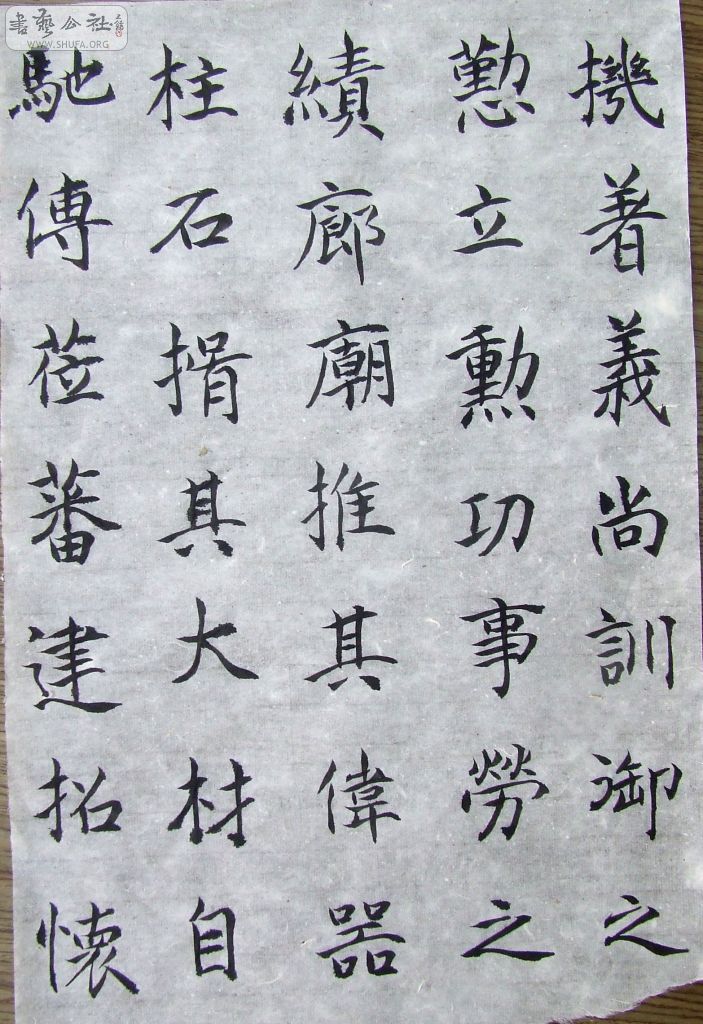 書藝公社
WWW.SHUFA.ORG
機著義尚訓御之
懃立勳功事勞之
績廊廟推其偉器
柱石揖其大材自
馳傳莅蕃建招懷